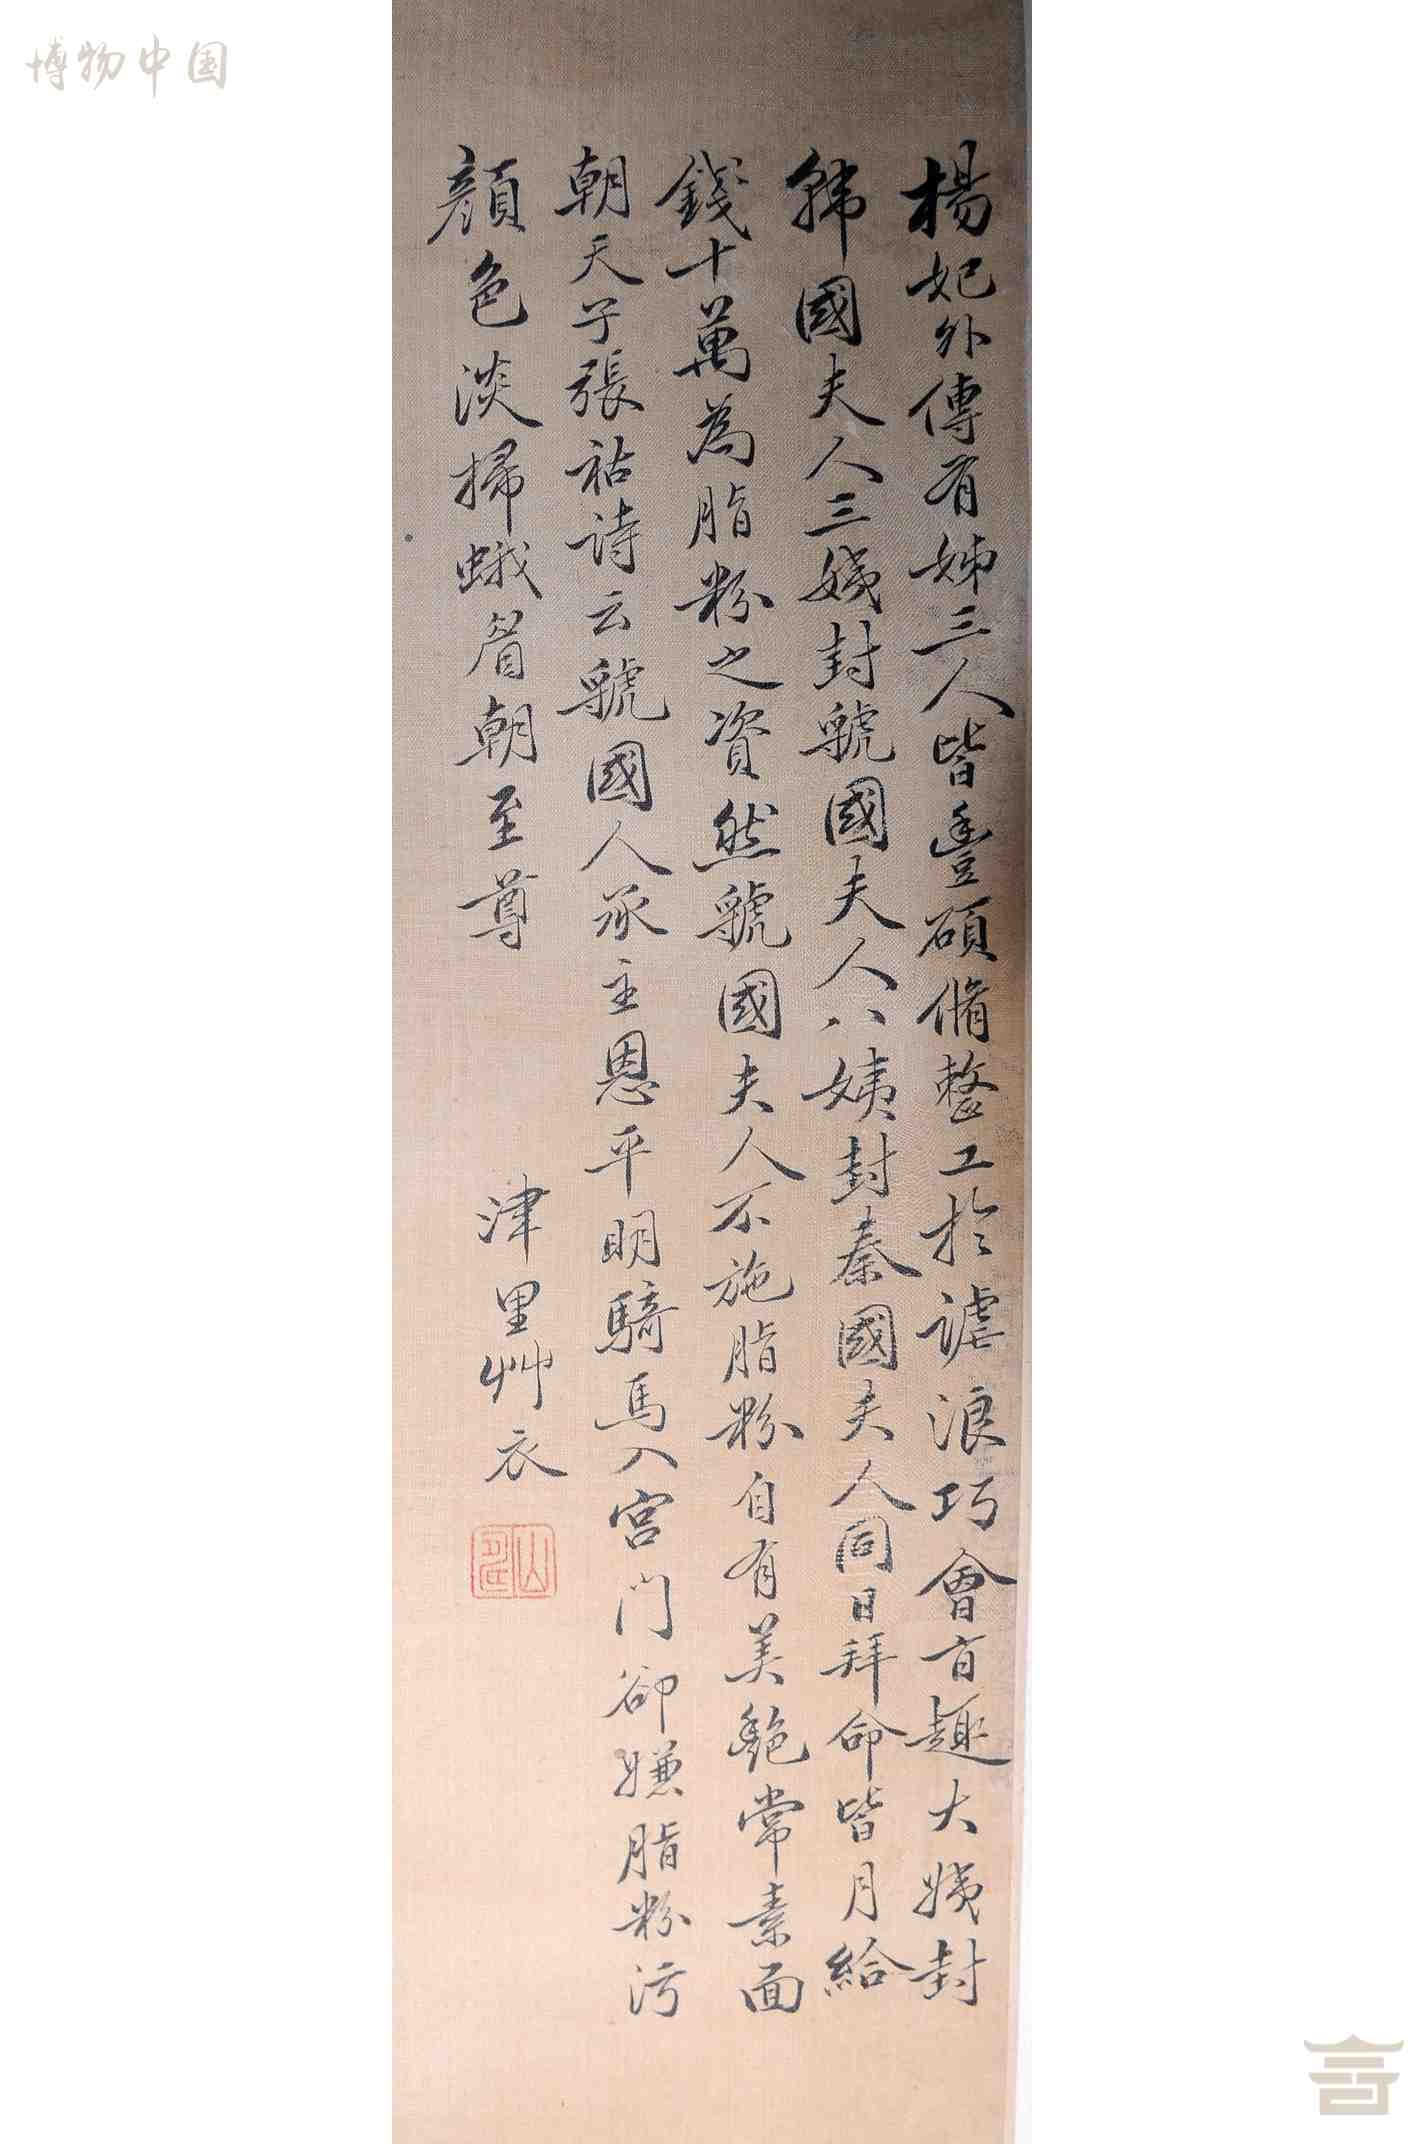 博物中国
楊妃外傳有姊三人皆豐碩脩整工於謔浪巧會旨趣大姨封
韩國夫人三姨封虢國夫人八姨封秦國夫人同日拜命皆月給
錢十萬為脂粉之資然虢國夫人不施脂粉自有美艶常素面
朝天子張祜詩云虢國人承主恩平明騎馬入宮門卻嫌脂粉污
顏色淡掃蛾眉朝至尊
津里艸衣